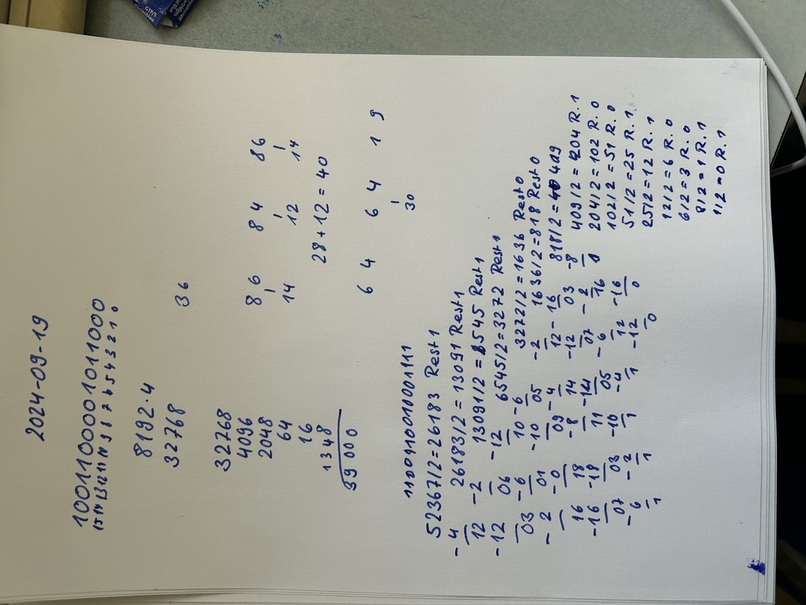 2024-09-19
1001100001011000
15 14 13 12 11 10 9 8 7 6 5 4 3 2 1 0
8192·4
32768
36
32768
4096
2048
64
16
1348
39000
86 84 86
14 12 14
28+12=40
64 64 19
30
1100110010001111
52367/2=26183 Rest 1
-4 26183/2=13091 Rest 1
12 -2 13091/2=6545 Rest 1
-12 06 -12 6545/2=3272 Rest 1
03 -6 10 -6 3272/2=1636 Rest 0
-2 01 -10 05 -2 1636/2=818 Rest 0
16 -0 09 -4 12 -16 818/2=409
-16 18 -8 14 -12 03 -8 409/2=204 R. 1
07 -18 11 -14 07 -2 204/2=102 R. 0
-6 03 -10 05 -6 16 102/2=51 R. 0
1 -2 1 -4 12 -16 51/2=25 R. 1
1 1 -12 0 25/2=12 R. 1
0 12/2=6 R. 0
6/2=3 R. 0
3/2=1 R. 1
1/2=0 R. 1